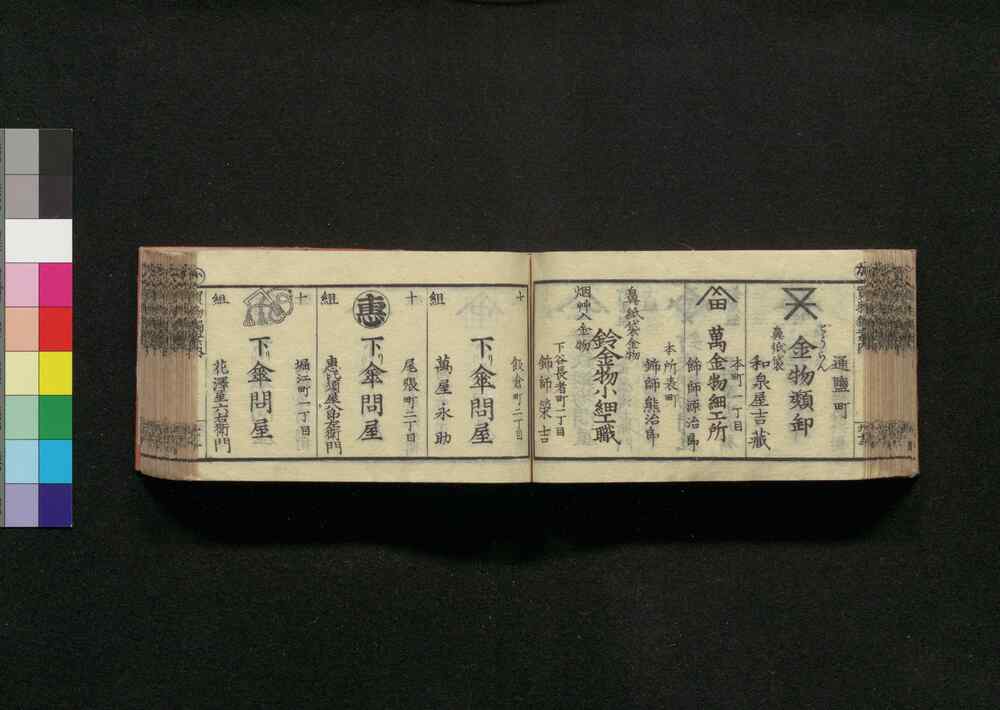 通鹽町
どうらん
金物類卸
鼻紙袋
和泉屋吉藏
本町一丁目
萬金物細工所
餝師源治郎
本所表町
餝師熊治郎
鼻紙袋金物
鈴金物小細工職
烟艸入金物
下谷長者町一丁目
餝師榮吉
飯倉町二丁目
十
下り傘問屋
組
萬屋永助
尾張町二丁目
十
惠
下り傘問屋
組
堀江町一丁目
十
下り傘問屋
組
花澤屋六右衛門